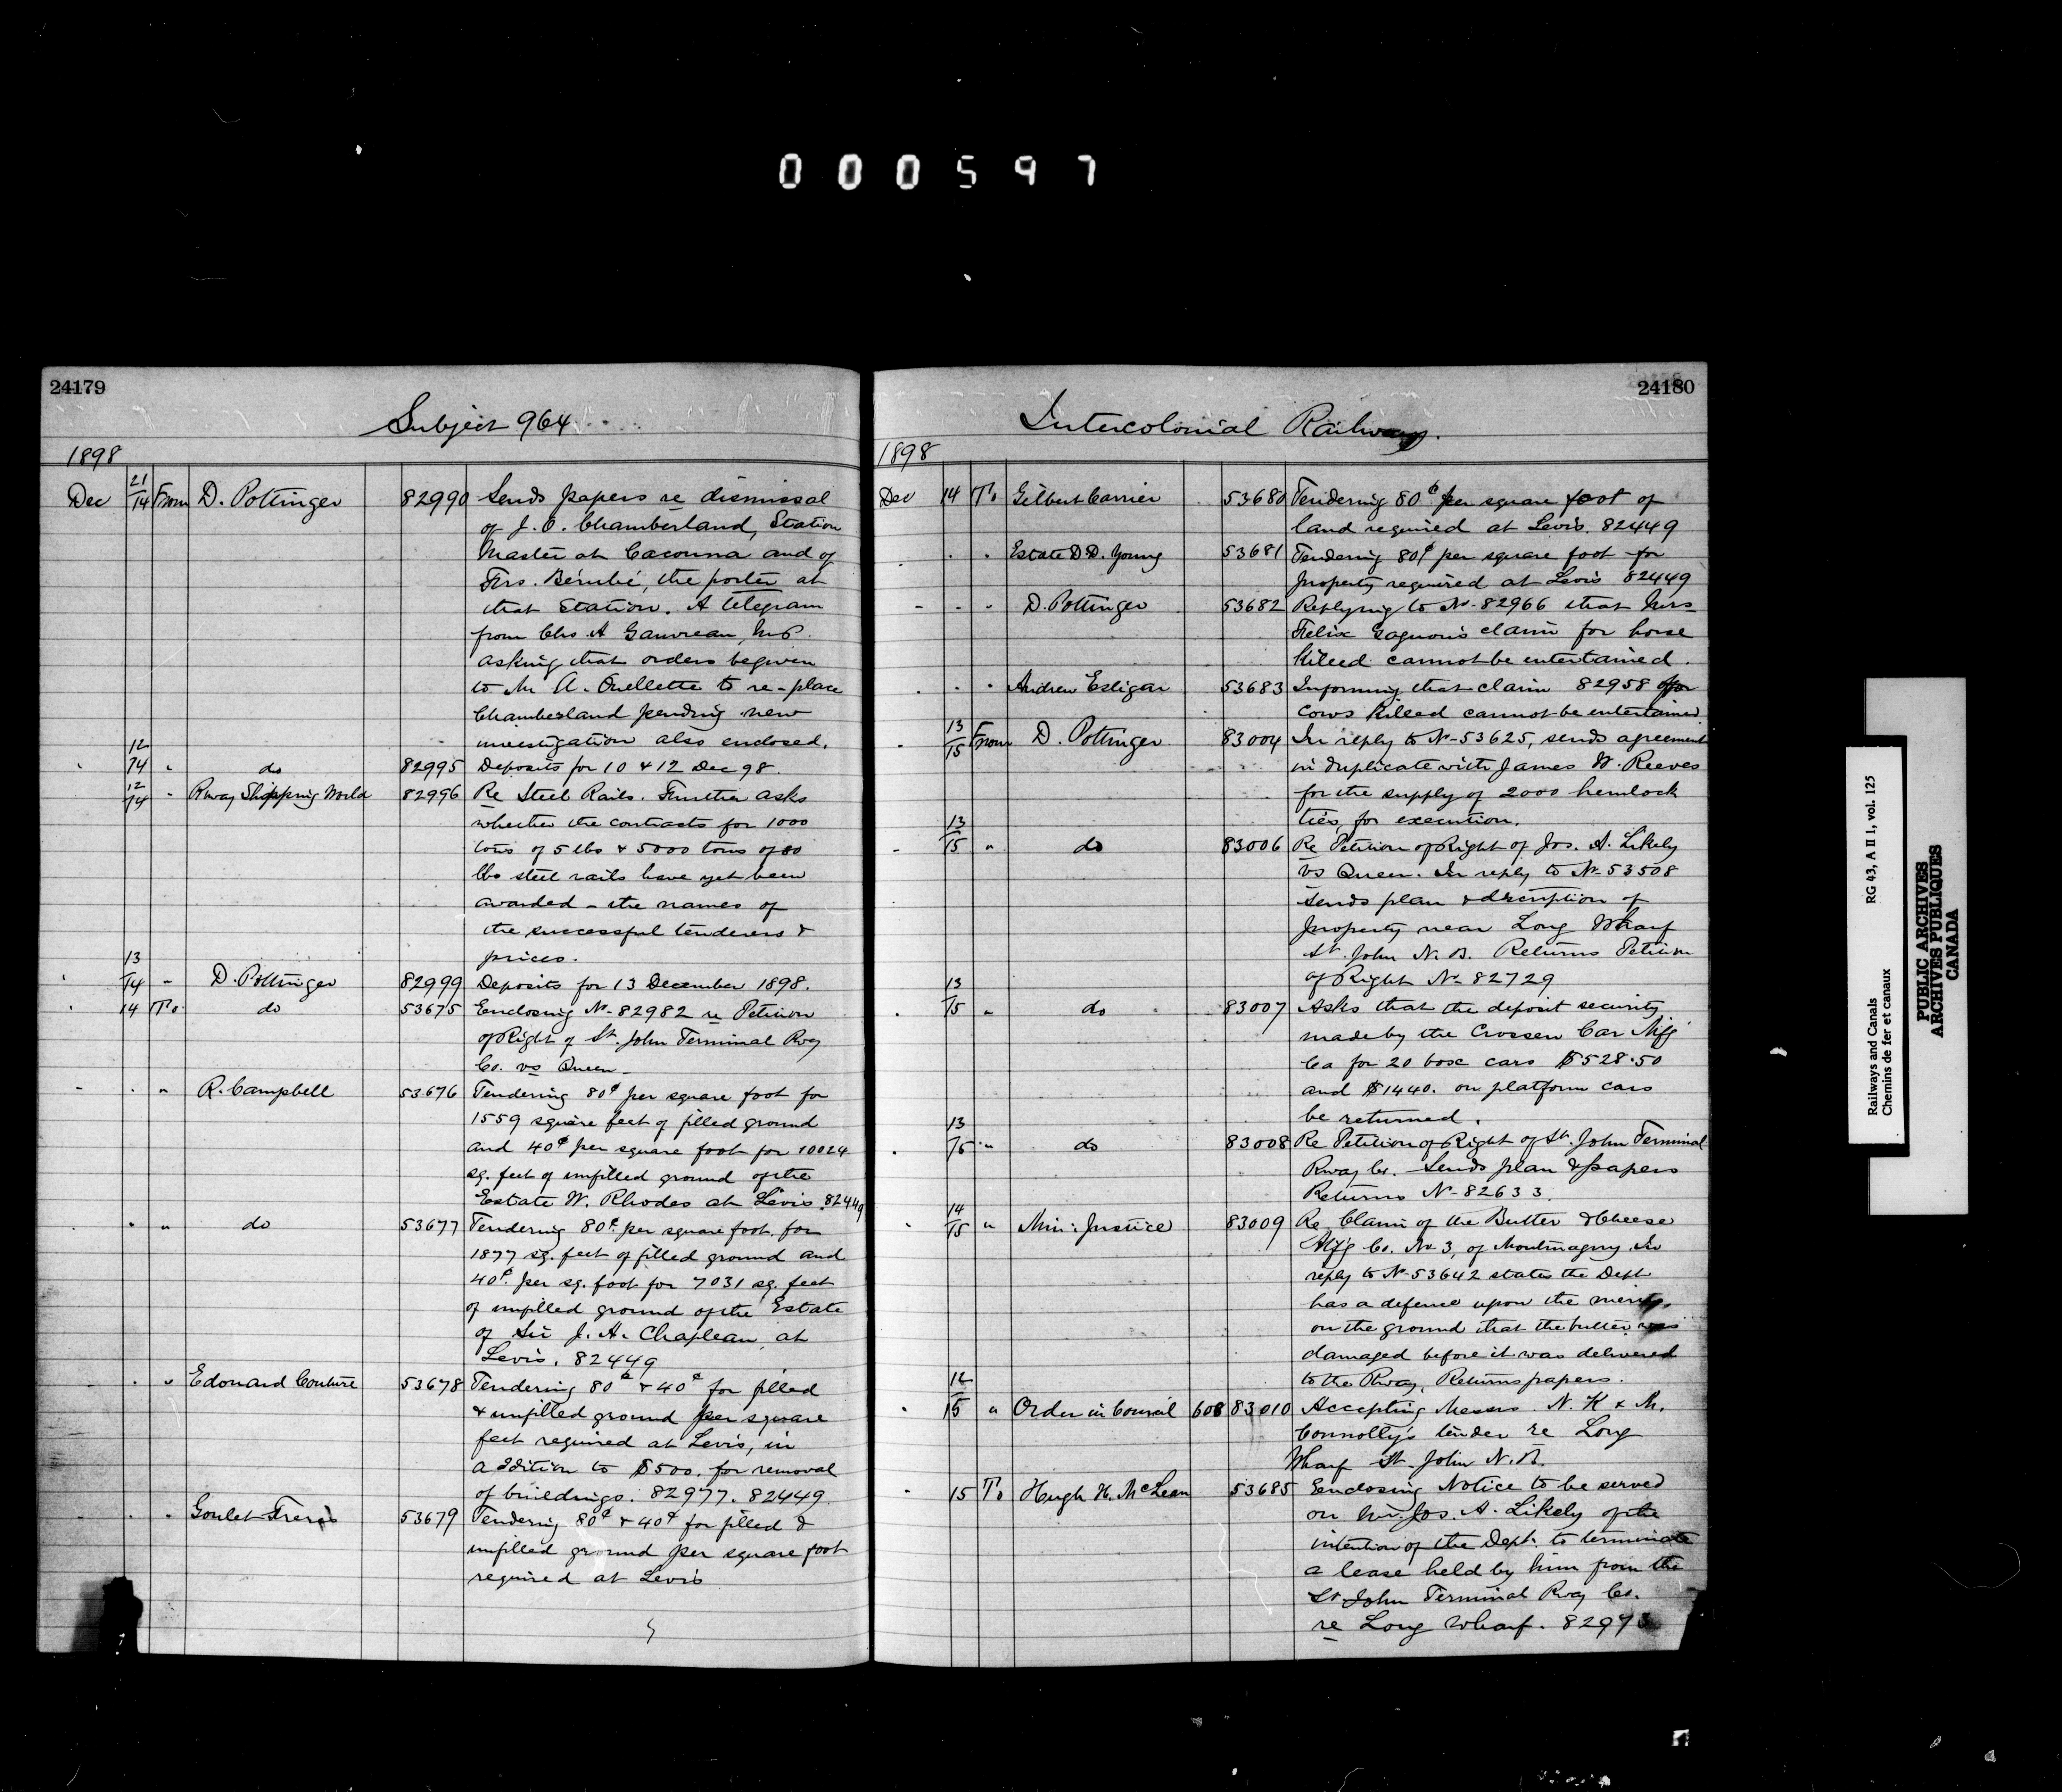 000597
24179
Subject 964
1898
Dec 21/14 From D. Pottinger 82990 Sends papers re dismissal
of J. O. Chamberland, Station
Master at Cacouna and of
Frs. Bérubé, the porter at
that Station. A telegram
from Chs A Gauvreau, M.P.
asking that orders be given
to Mr A. Ouellette to re-place
Chamberland pending new
investigation also enclosed.
12/14 " do 82995 Deposits for 10 & 12 Dec 98.
12/14 " Rway Shipping World 82996 Re Steel Rails. Further asks
whether the contracts for 1000
tons of 5 lbs & 5000 tons of 80
lbs steel rails have yet been
awarded - the names of
the successful tenderers &
prices.
13/14 " D. Pottinger 82999 Deposits for 13 December 1898.
14 To do 53675 Enclosing No 82982 re Petition
of Right of St. John Terminal Rwy
Co. vs Queen -
" " R. Campbell 53676 Tendering 80¢ per square foot for
1559 square feet of filled ground
and 40¢ per square foot for 10024
sq. feet of unfilled ground of the
Estate W. Rhodes at Levis. 82449
" " do 53677 Tendering 80¢ per square foot for
1877 sq. feet of filled ground and
40¢ per sq. foot for 7031 sq. feet
of unfilled ground of the Estate
of Sir J. A. Chapleau, at
Levis. 82449
" " Edouard Couture 53678 Tendering 80¢ & 40¢ for filled
& unfilled ground per square
feet required at Levis, in
addition to $500. for removal
of buildings. 82977. 82449.
" " Goulet Freres 53679 Tendering 80¢ & 40¢ for filled &
unfilled ground per square foot
required at Levis
24180
Intercolonial Railway.
1898
Dec 14 To Gilbert Carrier 53680 Tendering 80¢ per square foot of
land required at Levis. 82449
" " Estate D D. Young 53681 Tendering 80¢ per square foot for
property required at Levis 82449
" " D. Pottinger 53682 Replying to No 82966 that Mrs
Felix Gagnon's claim for horse
killed cannot be entertained.
" " Andrew Esligar 53683 Informing that claim 82958 for
cows killed cannot be entertained
13/15 From D. Pottinger 83004 In reply to No 53625, sends agreement
in duplicate with James W. Reeves
for the supply of 2000 hemlock
ties, for execution.
13/15 " do 83006 Re Petition of Right of Jos. A. Likely
vs Queen. In reply to No 53508
sends plan & description of
property near Long Wharf
St. John N. B. Returns Petition
of Right No 82729
13/15 " do 83007 Asks that the deposit security
made by the Crossen Car Mfg
Co for 20 box cars $528.50
and $1440. on platform cars
be returned.
13/15 " do 83008 Re Petition of Right of St. John Terminal
Rway Co. Sends plan & papers
Returns No 82633.
14/15 " Min: Justice 83009 Re Claim of the Butter & Cheese
Mfg Co. No 3, of Montmagny. In
reply to No 53642 states the Dept
has a defence upon the merits,
on the ground that the butter was
damaged before it was delivered
to the Rway. Returns papers.
12/15 " Order in Council 608 83010 Accepting Messrs. N. K & M.
Connolly's tender re Long
Wharf St. John N. B.
15 To Hugh H. McLean 53685 Enclosing Notice to be served
on Mr. Jos. A. Likely of the
intention of the Dept. to terminate
a lease held by him from the
St John Terminal Rway Co.
re Long Wharf. 82973
Railways and Canals
Chemins de fer et canaux
RG 43, A II 1, vol. 125
PUBLIC ARCHIVES
ARCHIVES PUBLIQUES
CANADA